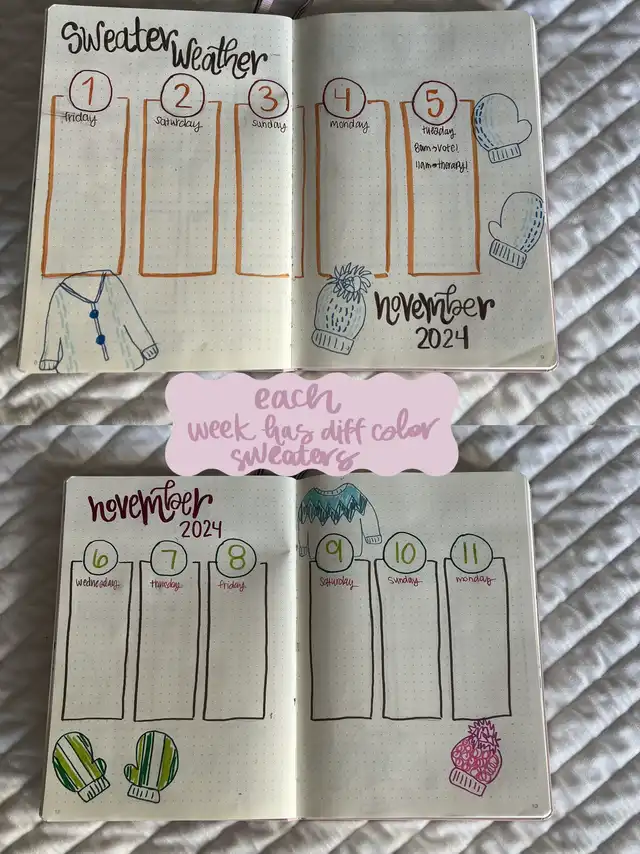 Sweater Weather
1
friday
2
saturday
3
sunday
4
monday
5
tuesday
8am→vote!
11am→therapy!
november
2024
each
week has diff color
sweaters
november
2024
6
wednesday
7
thursday
8
friday
9
saturday
10
sunday
11
monday